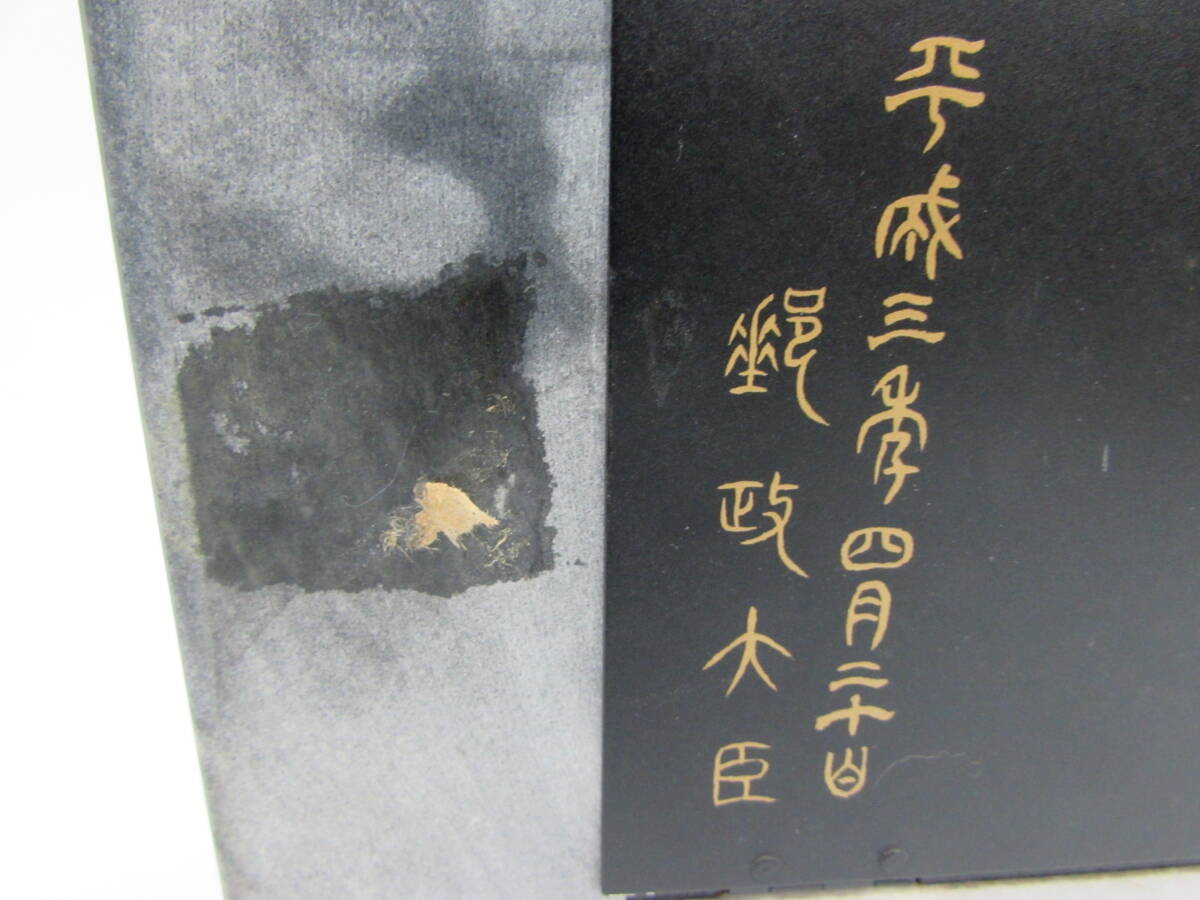 平成三年四月二十日
郵政大臣